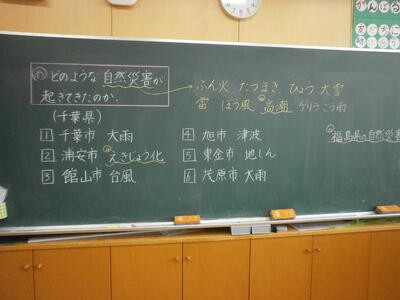 め どのような自然災害が
起きてきたのか。
ふん火 たつまき ひょう 大雪
雷 ぼう風 高潮 ゲリラごう雨
(千葉県)
1 千葉市 大雨
2 浦安市 えきじょう化
3 館山市 台風
4 旭市 津波
5 東金市 地しん
6 茂原市 大雨
福島県の自然災害
がんばろう